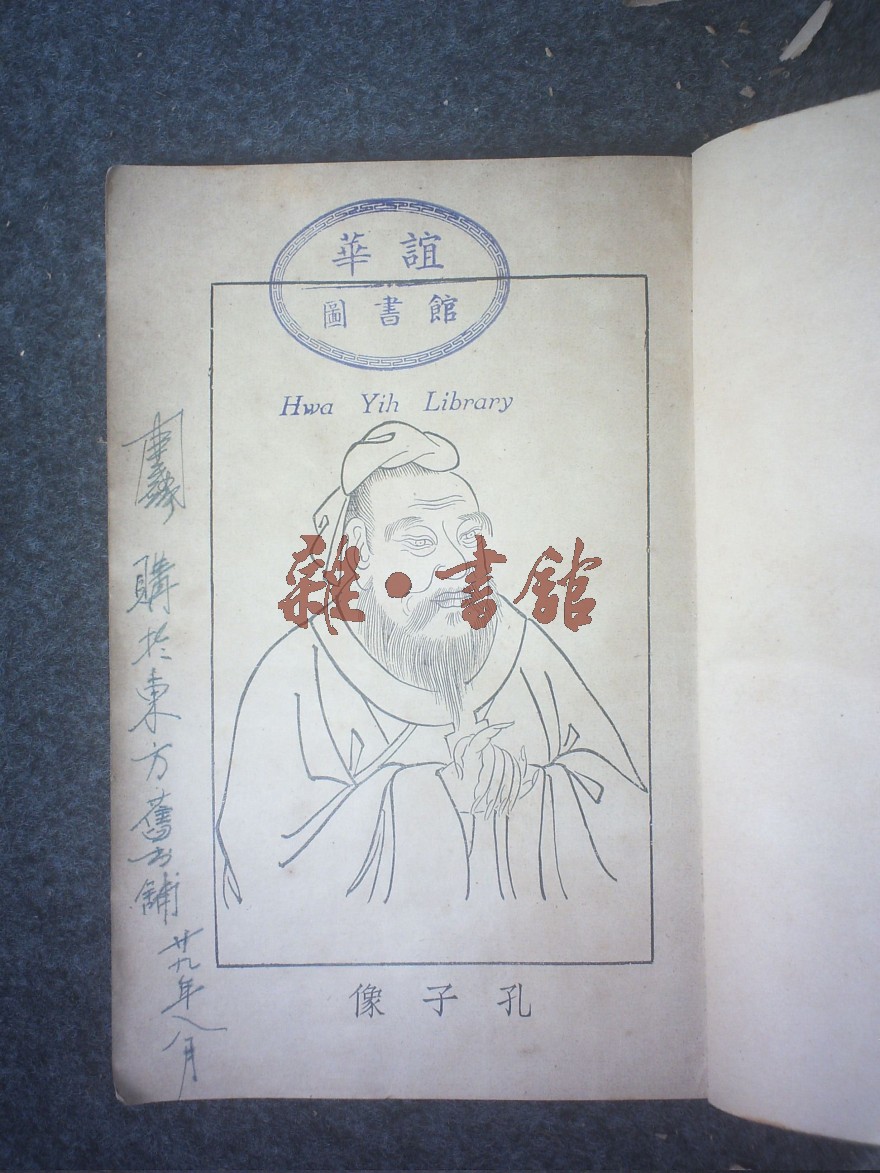 華誼
圖書館
Hwa Yih Library
雜·書館
購於東方舊書鋪
廿九年八月
像子孔